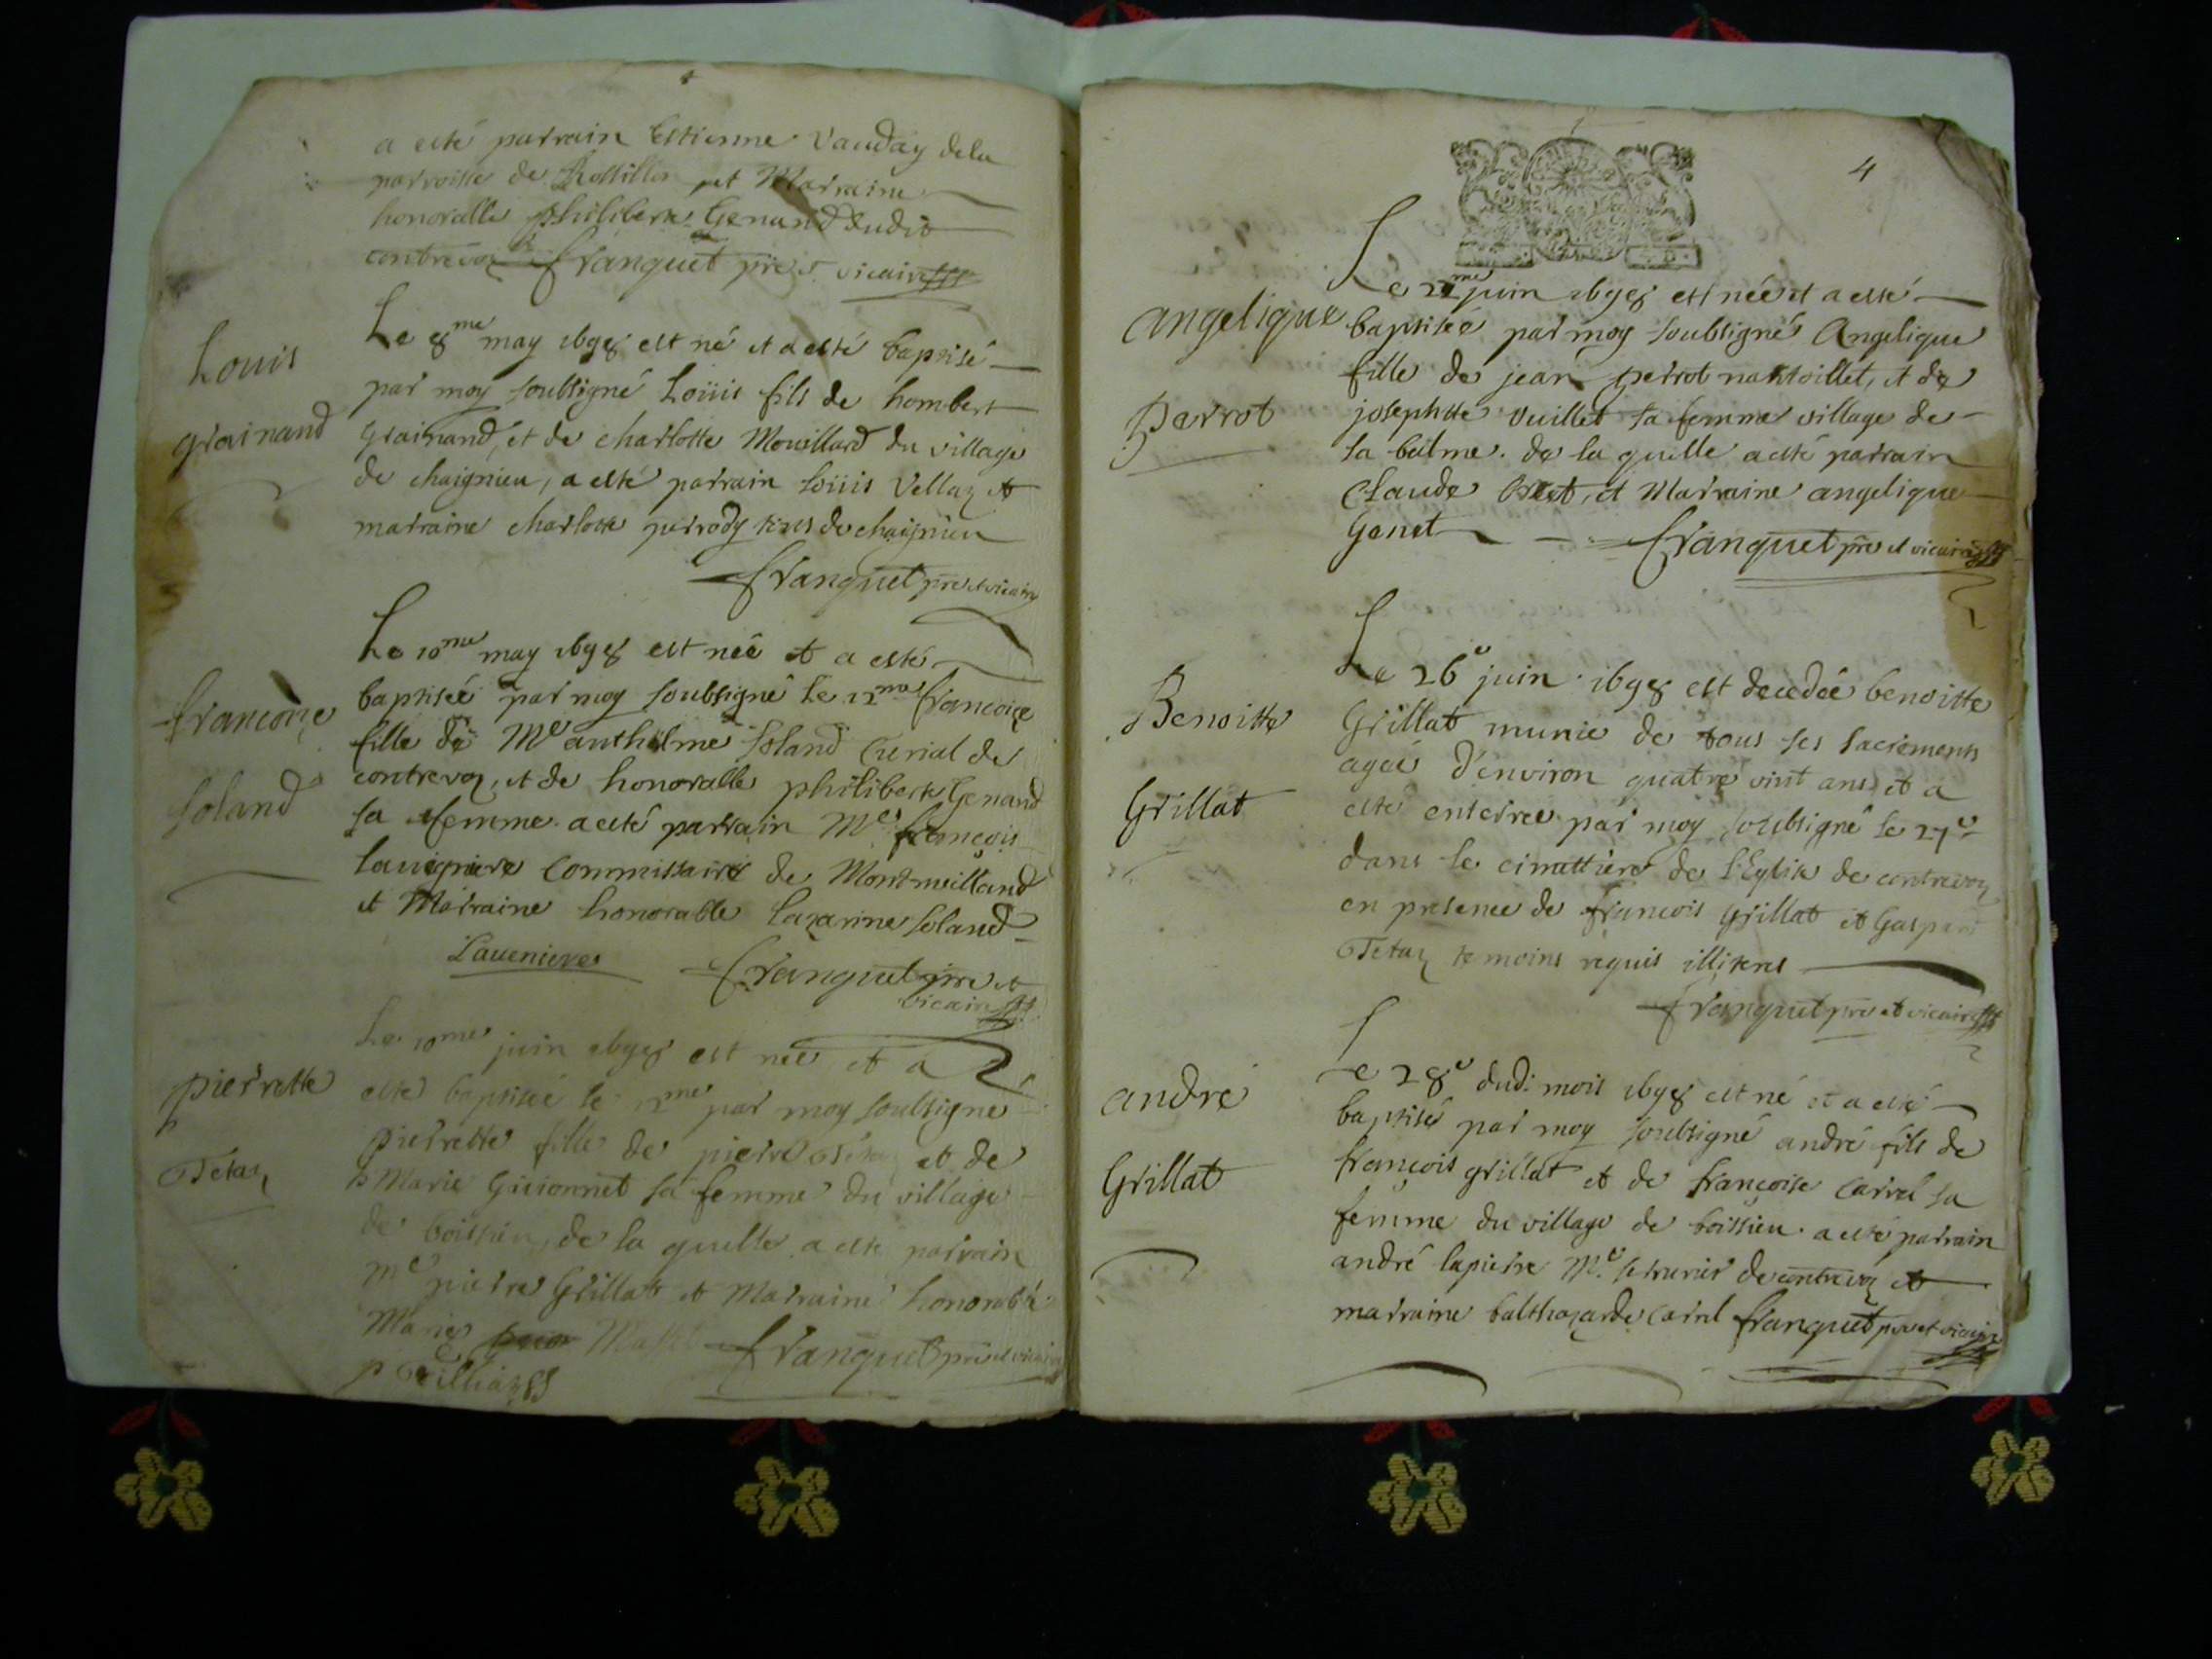 a esté parrain Estienne Vauday dela
parroisse de Rossillon et Marraine
honoralle philiberte Genand dudit
contrevoz franquet pre et vicaire
Louis
grainand
Le 8me may 1698 est né et a esté baptisé
par moy soubsigné Loüis fils de hombert
grainand, et de charlotte Mouillard du village
de chaignieu, a esté parrain Loüis Vellaz et
marraine charlotte perrody tous de chaignieu
franquet pre et vicaire
francoise
soland
Le 10me may 1698 est née et a esté
baptisée par moy soubsigné le 12me francoise
fille de Me anthelme soland Curial de
contrevoz, et de honoralle philiberte Genand
sa femme a esté parrain Mes françois
commissaire de Montmeilland
et Marraine honorable Lazarine soland
Lauenieres franquet pre et
vicaire
pierrette
Tetaz
Le 10me juin 1698 est née et a
esté baptisée le 12me par moy soubsigné
pierrette fille de pierre Tetaz et de
Marie Guionnet sa femme du village
de boissieu, de la quelle a esté parrain
me pierre Grillat et Marraine honorable
Marie franquet pre et vicaire
4
angelique
perrot
Le 22me juin 1698 est née et a esté
baptisée par moy soubsigné Angelique
fille de jean perrot nantoillet, et de
josephtte Vuillet sa femme village de
la balme. de la quelle a esté parrain
Claude et Marraine angelique
Genet franquet pre et vicaire
Benoitte
Grillat
Le 26e juin 1698 est decedée benoitte
Grillat munie de tous ses sacrements
agée d'environ quatre vint ans et a
esté enterree par moy soubsigné le 27e
dans le cimettiere de l'Eglise de contrevoz
en presence de francois grillat et Gaspard
Tetaz temoins requis illiteres
franquet pre et vicaire
andré
Grillat
Le 28e dudi mois 1698 est né et a esté
baptisé par moy soubsigné andré fils de
françois grillat et de françoise carrel sa
femme du village de boissieu a esté parrain
andré lapierre Me serrurier de contrevoz et
marraine balthazarde carrel franquet pre et vicaire